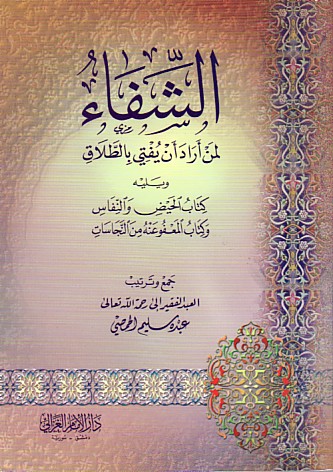 الشِّفَاءُ
لمن أراد أن يفتي بالطلاق
ويليه
كتاب الحيض والنفاس
وكتاب المعفو عنه من النجاسات
جمع وترتيب
العبد الفقير إلى رحمة الله تعالى
عبد سليم الحمصي
دار الإمام الغزالي
دمشق - سوريا